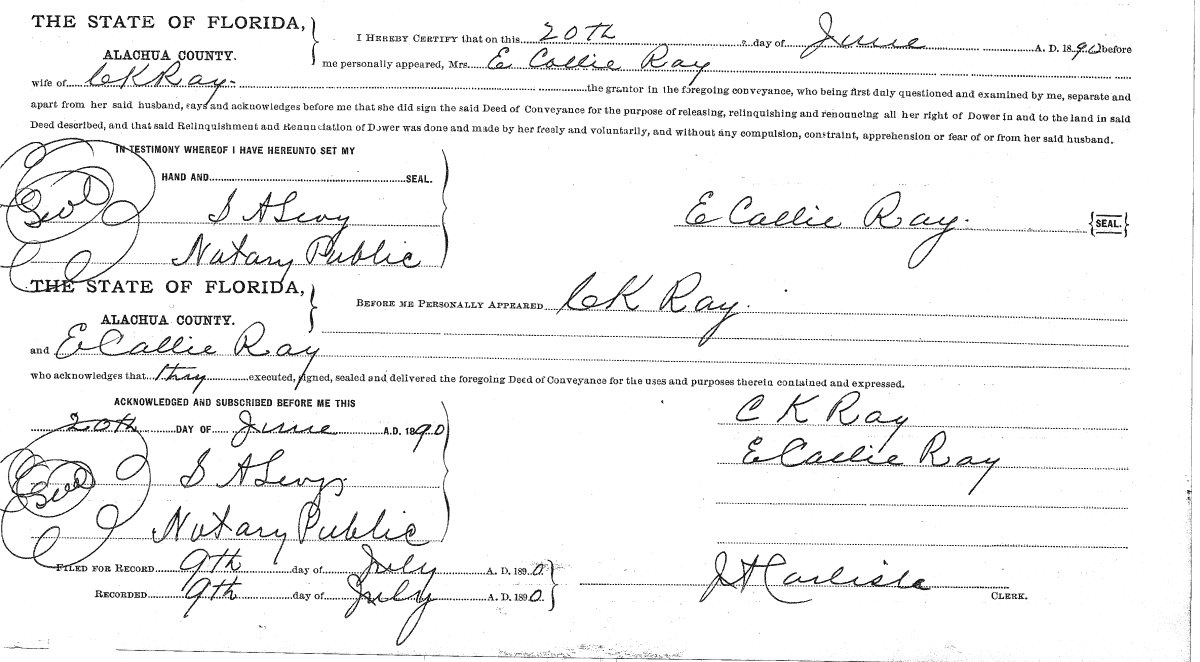 THE STATE OF FLORIDA,
ALACHUA COUNTY.
I HEREBY CERTIFY that on this 20th day of June A. D. 1890 before
me personally appeared, Mrs. E Callie Ray
wife of C K Ray. the grantor in the foregoing conveyance, who being first duly questioned and examined by me, separate and
apart from her said husband, says and acknowledges before me that she did sign the said Deed of Conveyance for the purpose of releasing, relinquishing and renouncing all her right of Dower in and to the land in said
Deed described, and that said Relinquishment and Renunciation of Dower was done and made by her freely and voluntarily, and without any compulsion, constraint, apprehension or fear of or from her said husband.
IN TESTIMONY WHEREOF I HAVE HEREUNTO SET MY
HAND AND SEAL.
Seal S A Levy
E Callie Ray. {SEAL.}
Notary Public
THE STATE OF FLORIDA,
ALACHUA COUNTY.
BEFORE ME PERSONALLY APPEARED C K Ray.
and E Callie Ray
who acknowledges that they executed, signed, sealed and delivered the foregoing Deed of Conveyance for the uses and purposes therein contained and expressed.
ACKNOWLEDGED AND SUBSCRIBED BEFORE ME THIS
20th DAY OF June A.D. 1890
C K Ray
E Callie Ray
Seal S A Levy
Notary Public
FILED FOR RECORD 9th day of July A. D. 1890
RECORDED 9th day of July A. D. 1890.
J H Carlisle
CLERK.